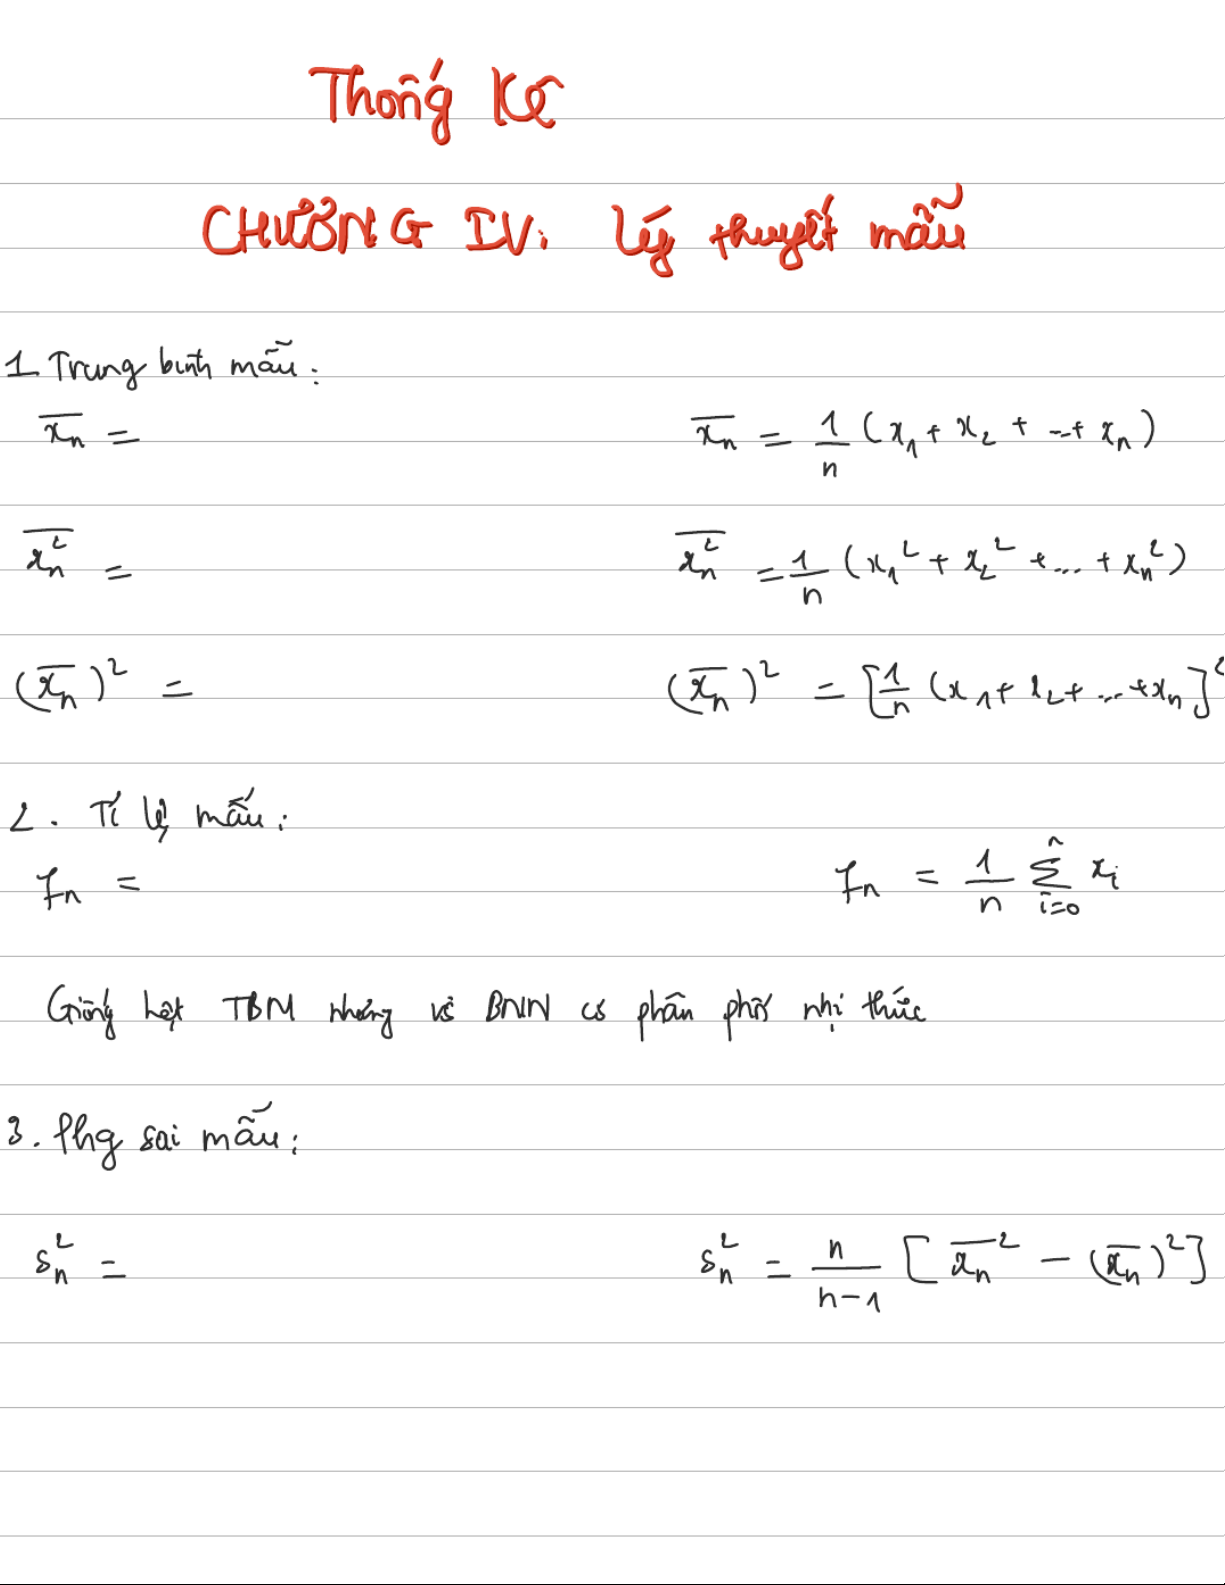 Thống Kê
CHƯƠNG IV: Lý thuyết mẫu
1. Trung bình mẫu:
$\overline{x_n} =$ $\overline{x_n} = \frac{1}{n}(x_1 + x_2 + \ldots + x_n)$
$\overline{x_n^2} =$ $\overline{x_n^2} = \frac{1}{n}(x_1^2 + x_2^2 + \ldots + x_n^2)$
$(\overline{x_n})^2 =$ $(\overline{x_n})^2 = \left[\frac{1}{n}(x_1 + x_2 + \ldots + x_n)\right]^2$
2. Tỉ lệ mẫu:
$f_n =$ $f_n = \frac{1}{n}\sum_{i=0}^{n} x_i$
Giống hệt TBM nhưng với BNN có phân phối nhị thức
3. Phg sai mẫu:
$s_n^2 =$ $s_n^2 = \frac{n}{n-1}\left[\overline{x_n}^2 - (\overline{x_n})^2\right]$